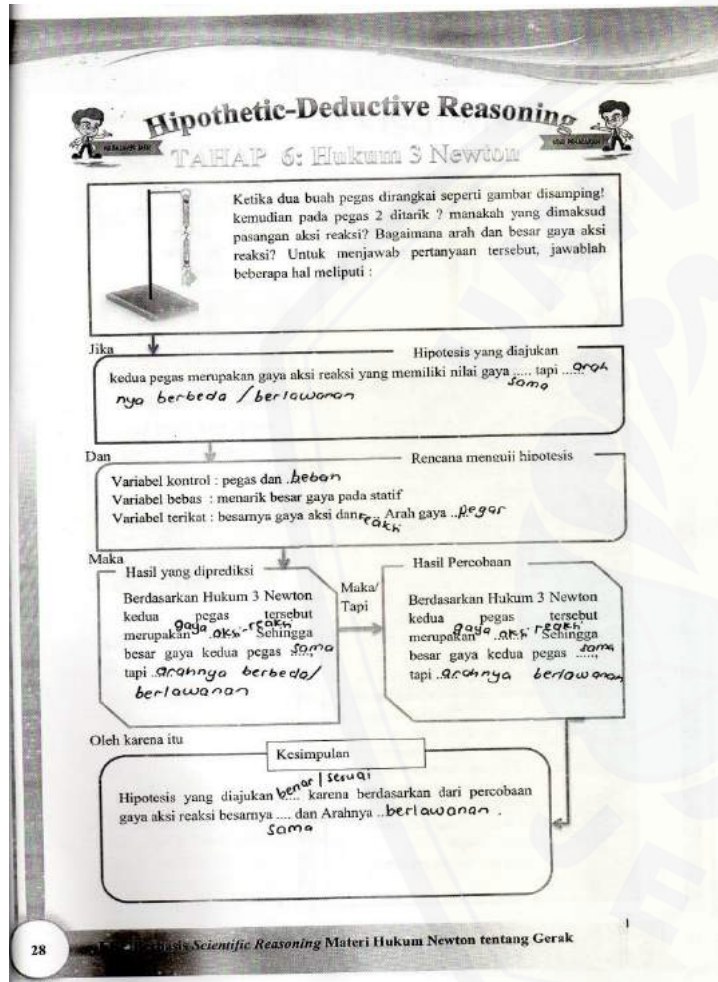 Hipothetic-Deductive Reasoning
TAHAP 6: Hukum 3 Newton
Ketika dua buah pegas dirangkai seperti gambar disamping!
kemudian pada pegas 2 ditarik ? manakah yang dimaksud
pasangan aksi reaksi? Bagaimana arah dan besar gaya aksi
reaksi? Untuk menjawab pertanyaan tersebut, jawablah
beberapa hal meliputi :
Jika
Hipotesis yang diajukan
kedua pegas merupakan gaya aksi reaksi yang memiliki nilai gaya ..... sama tapi ...... arah
nya berbeda / berlawanan
Dan
Rencana menguji hipotesis
Variabel kontrol : pegas dan ..beban
Variabel bebas : menarik besar gaya pada statif
Variabel terikat : besarnya gaya aksi dan reaksi Arah gaya ..pegas
Maka
Hasil yang diprediksi
Berdasarkan Hukum 3 Newton
kedua pegas tersebut
merupakan gaya aksi-reaksi Sehingga
besar gaya kedua pegas ..... sama
tapi ..arahnya berbeda/
berlawanan
Maka/
Tapi
Hasil Percobaan
Berdasarkan Hukum 3 Newton
kedua pegas tersebut
merupakan gaya aksi reaksi Sehingga
besar gaya kedua pegas ...... sama
tapi ..arahnya berlawanan
Oleh karena itu
Kesimpulan
Hipotesis yang diajukan .... benar / sesuai karena berdasarkan dari percobaan
gaya aksi reaksi besarnya .... sama dan Arahnya ..berlawanan .
28
Berbasis Scientific Reasoning Materi Hukum Newton tentang Gerak